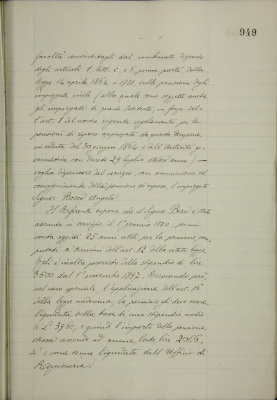 949
facoltà concessagli dal combinato disposto
degli articoli 1, lett. c, e 5 prima parte della
legge 14 aprile 1864, n. 1731, sulle pensioni degli
impiegati civili (alla quale sono soggetti anche
gli impiegati di questo Istituto, in forza del-
l'art. 1 del vigente regolamento per le
pensioni di riposo approvato da questo
in seduta del 30 giugno 1864 e dall'autorità go-
vernativa con Decreto 29 luglio stesso anno) —
voglia dispensare dal servizio, con ammissione al
conseguimento della pensione di riposo, l'impiegato
Signor Bossi Angelo.
Il Referente espone che il Signor Bossi è stato
assunto in servizio il 1° 1870, sicchè
conta oggidì 25 anni utili per la pensione com-
putati a termini dell'art. 12 della citata legge.
Egli è inoltre provvisto dello stipendio di lire
3500 dal 1° novembre 1892. Ricorrendo però,
nel caso speciale, l'applicazione dell'art. 16
della legge medesima, la pensione di
liquidata sulla base di uno stipendio medio
di L. 3960, e quindi l'importo della pensione,
dovrà ascendere ad annue lorde lire 2066,
sì e come venne liquidata dall'Ufficio di
Ragioneria.